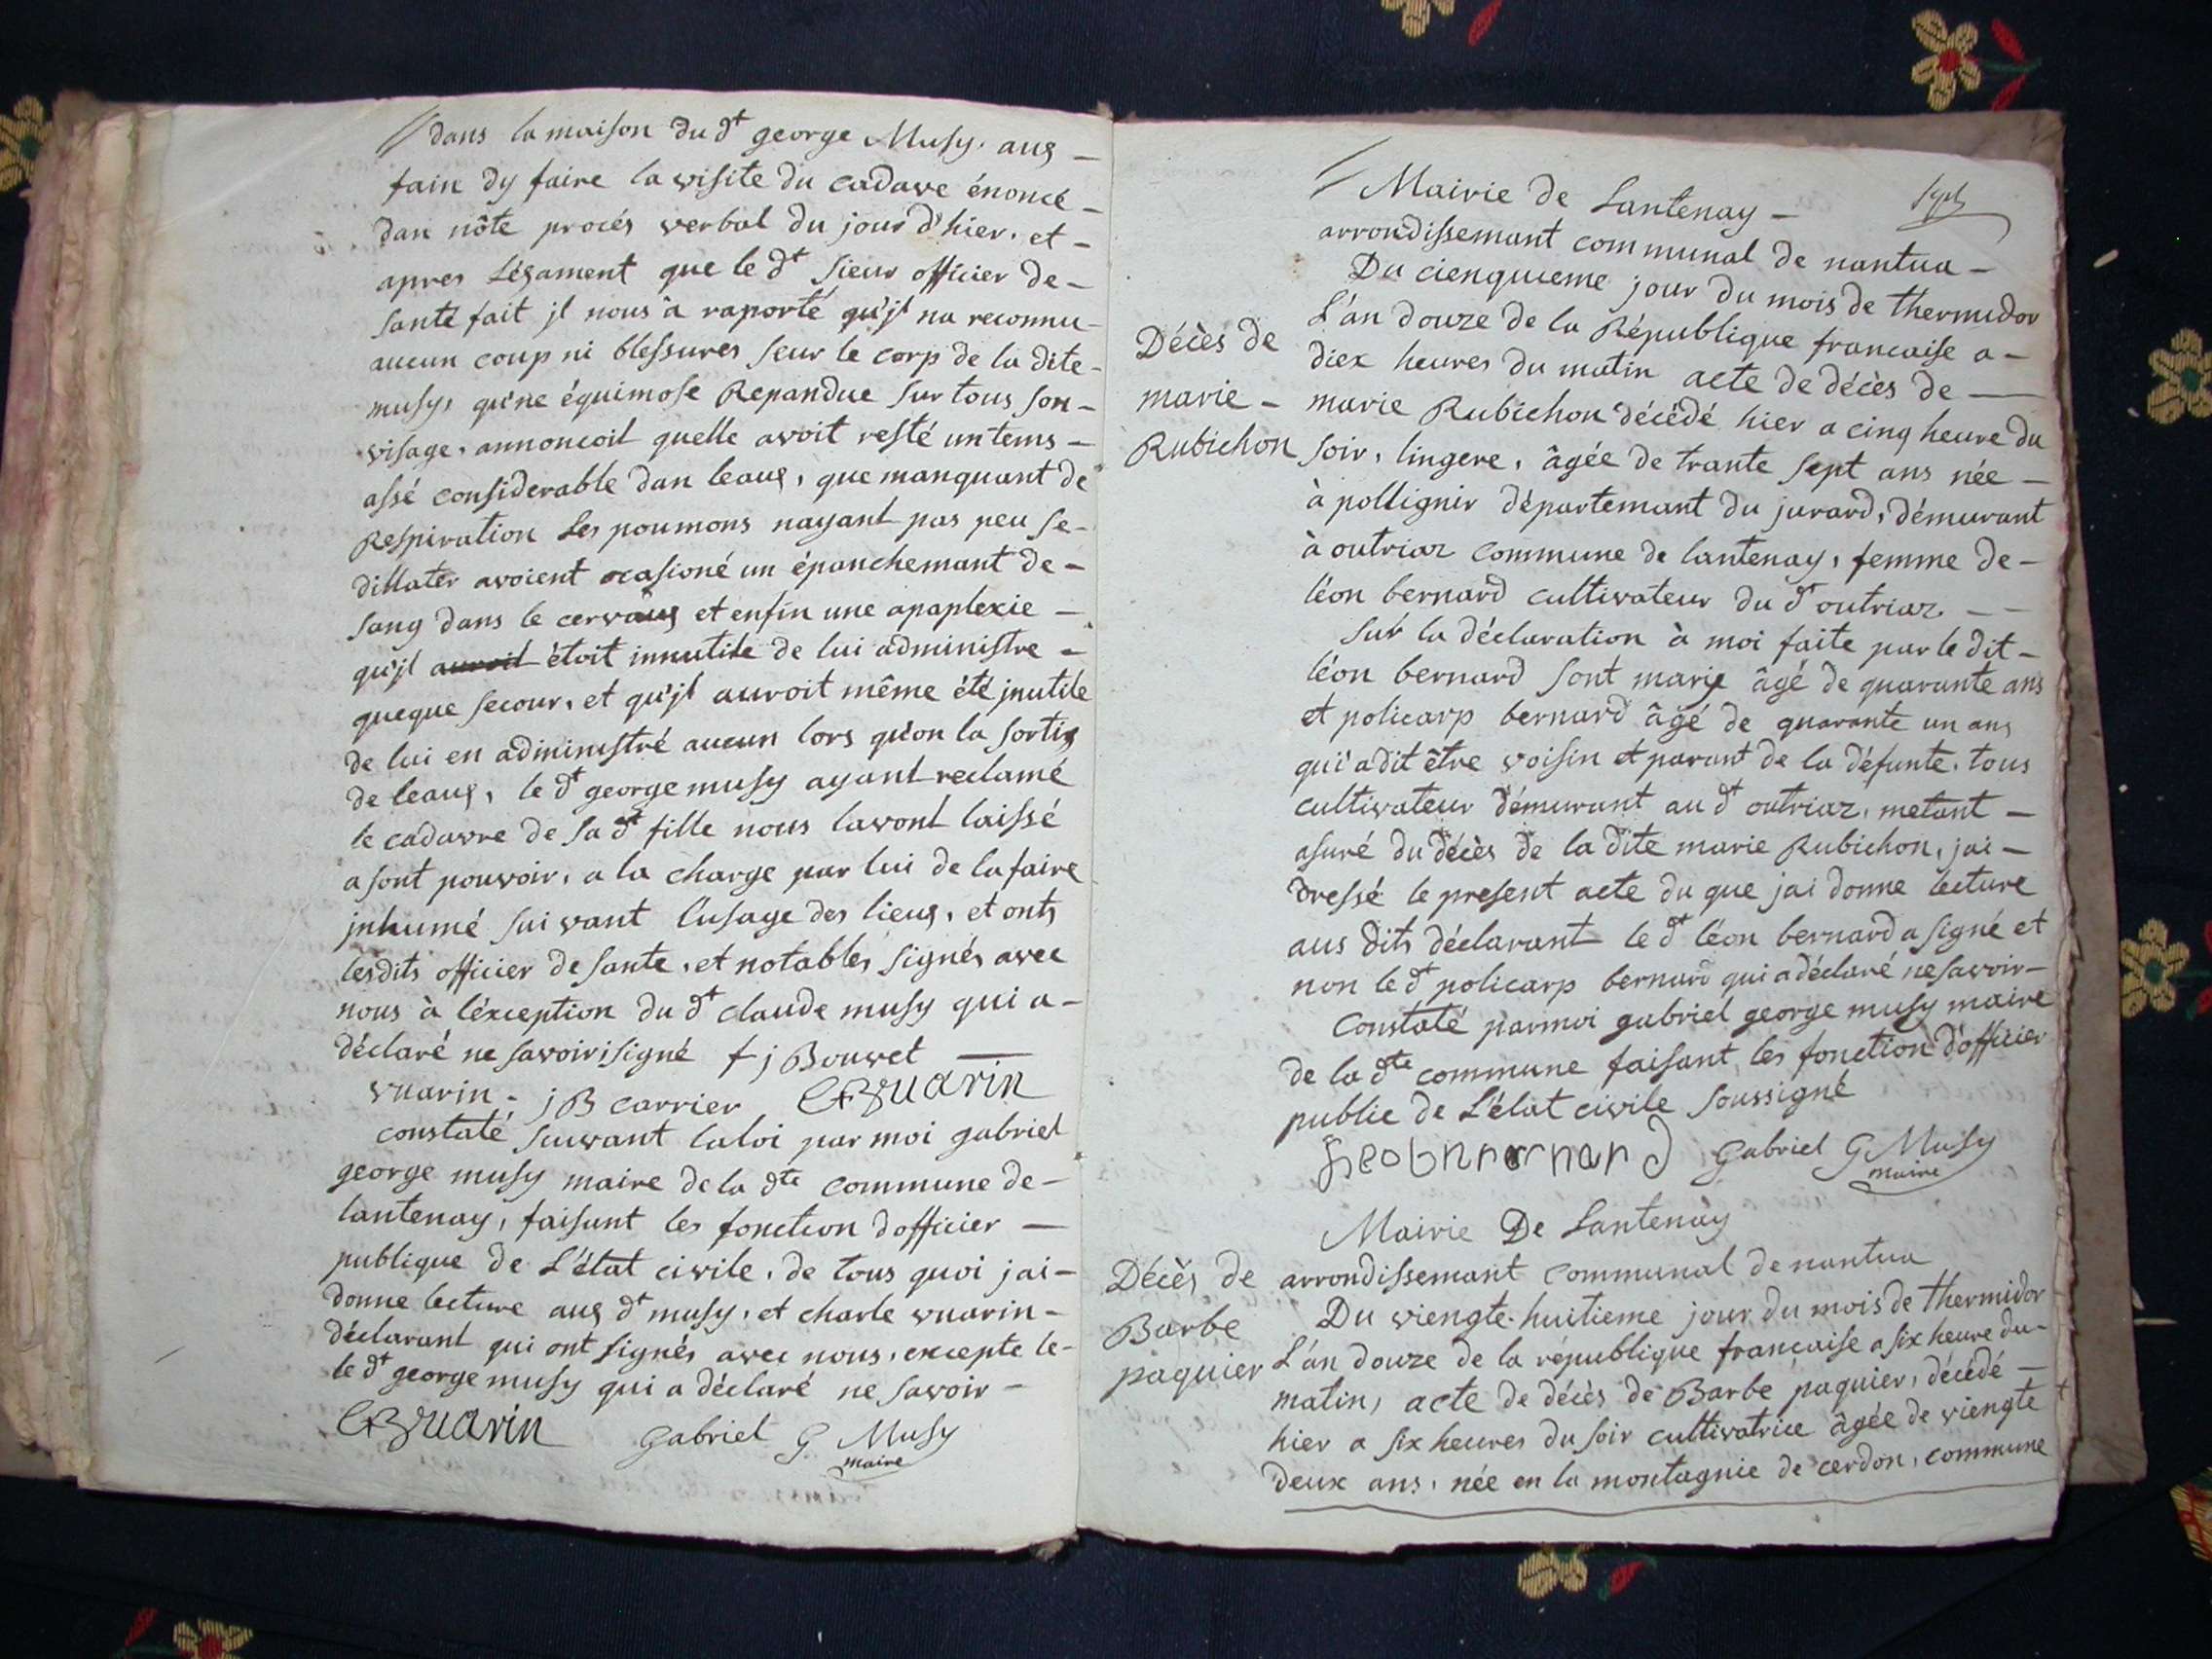 dans la maison du dt george Musy. aus -
fain dy faire la visite du cadavre énoncé -
dan nôte procés verbal du jour d'hier. et -
apres Légsament que le dt sieur officier de -
santé fait jl nous à raporté qu'jl na reconnu -
aucun coup ni blessures seur le corp de la dite -
musy, qu'ne équimose Repandue sur tous son -
visage, annoncoit quelle avoit resté un tems -
assé considerable dan leaus, que manquant de
Respiration Les poumons nayant pas peu se -
dillater avoient ocasioné un épanchemant de -
sang dans le cervaus et enfin une apaplexie -
qu'jl auroit étoit innutile de lui administre -
queque secour, et qu'jl auroit même été jnutile
de lui en administré aucun lors qu'on la sortis
de leaus, le dt george musy ayant reclamé
le cadavre de sa dt fille nous lavont laissé
a sont pouvoir, a la charge par lui de la faire
jnhumé suivant l'usage des lieus, et onts
lesdits officier de sante, et notables signés avec
nous à léxception du dt claude musy qui a -
déclaré ne savoir, signé f j Bouvet
vuarin - j B carrier CB vuarin
constaté suivant la loi par moi gabriel
george musy maire de la dte commune de -
lantenay, faisant les fonction dofficier -
publique de L'état civile, de tous quoi jai -
donne lecture aus dt musy, et charle vuarin -
déclarant qui ont signés avec nous, excepte le -
le dt george musy qui a déclaré ne savoir -
CB vuarin Gabriel G. Musy
maire
Mairie de Lantenay -
arrondissemant communal de nantua -
Du cienquieme jour du mois de thermidor
L'án douze de la République francaise a -
diex heures du matin acte de décès de -
Décès de
marie -
Rubichon
marie Rubichon décédé hier a cinq heure du
soir, lingere, âgée de trante sept ans née -
à pollignir départemant du jurard, démurant
à outriaz commune de lantenay, femme de -
léon bernard cultivateur du dt outriaz. -
sur la déclaration à moi faite par le dit -
léon bernard sont marie âgé de quarante ans
et policarp bernard âgé de quarante un ans
qui a dit être voisin et parant de la défunte, tous
cultivateur démurant au dt outriaz, metant -
asuré du décès de la dite marie Rubichon, jai -
dressé le present acte du que jai donne lecture
aus dits déclarant le dt léon bernard a signé et
non le dt policarp bernard qui a déclaré ne savoir -
Constaté par moi gabriel george musy maire
de la dte commune faisant les fonction dofficier
public de L'état civile soussigné
Gabriel G Musy
maire
Mairie De Lantenay
arrondissemant communal de nantua
Décès de
Barbe
paquier
Du viengte-huitieme jour du mois de thermidor
L'án douze de la république francaise a six heure du -
matin, acte de décès de Barbe paquier, décédé -
hier a six heures du soir cultivatrice âgée de viengte
deux ans, née en la montagnie de cerdon, commune